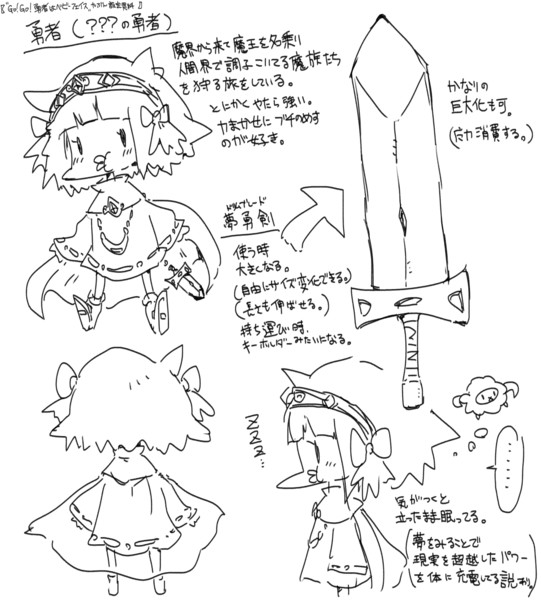 勇者(???の勇者)
魔界から来て魔王を名乗り
人間界で調子こいてる魔族たち
を狩る旅をしている。
とにかくやたら強い。
力まかせにブチのめす
のが好き。
かなりの
巨大化も可。
(応力消費する。)
夢勇剣
使う時
大きくなる。
(自由にサイズ変化できる。)
(長さも伸ばせる。)
持ち運び時、
キーホルダーみたいになる。
ZZZ...
気がつくと
立ったまま眠ってる。
(夢をみることで
現実を超越したパワー
を体に充電してる説あり。)